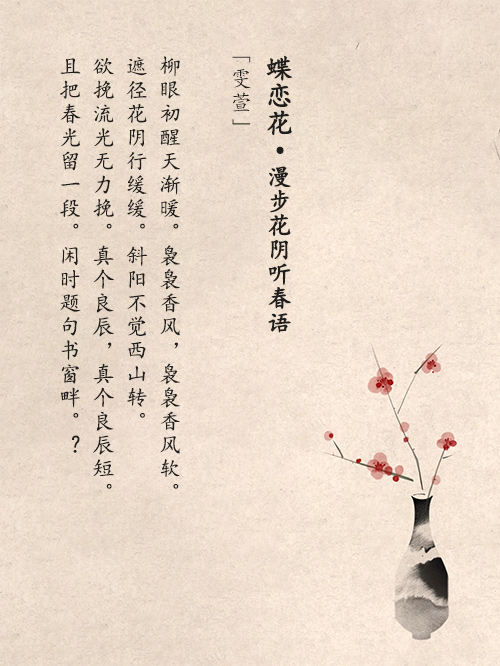 蝶恋花•漫步花阴听春语
「雯萱」
柳眼初醒天渐暖。袅袅香风，袅袅香风软。
遮径花阴行缓缓。斜阳不觉西山转。
欲挽流光无力挽。真个良辰，真个良辰短。
且把春光留一段。闲时题句书窗畔。?